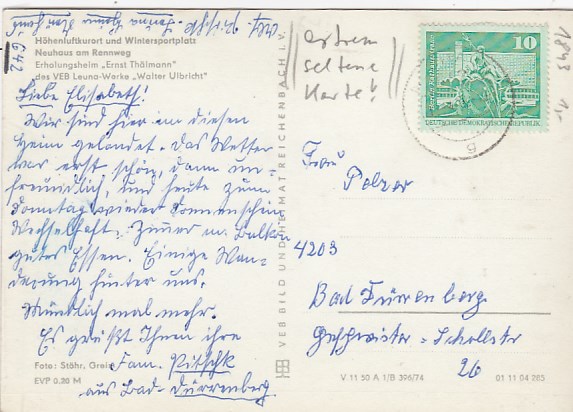 Höhenluftkurort und Wintersportplatz
Neuhaus am Rennweg
Erholungsheim „Ernst Thälmann“
des VEB Leuna-Werke „Walter Ulbricht“
G42
Liebe Elisabeth!
Wir sind hier in diesem
Heim gelandet. Das Wetter
war erst schön, dann un-
freundlich, und heute zum
Sonntag wieder Sonnenschein
Wechselhaft. Zimmer m. Balkon
gutes Essen. Einige Wan-
derung hinter uns.
Mündlich mal mehr.
Es grüßt Ihnen ihre
Fam. Nitschk
aus Bad-Dürrenberg
Foto: Stöhr, Greiz
EVP 0.20 M
VEB BILD UND HEIMAT REICHENBACH I. V.
extrem
seltene
Karte!
10
DEUTSCHE DEMOKRATISCHE REPUBLIK
1843
1,-
Frau
Pelzer
4203
Bad Dürrenberg
Geschwister-Schollstr
26
V 11 50 A 1/B 396/74
01 11 04 265